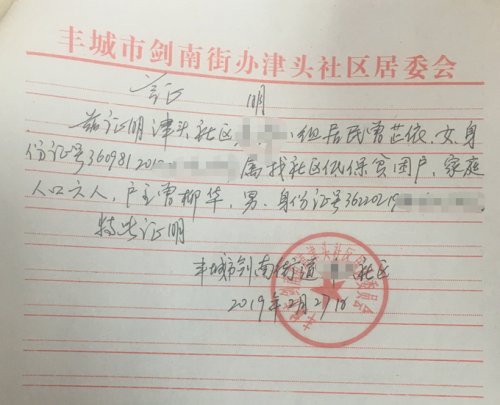 丰城市剑南街办津头社区居委会
证 明
兹证明津头社区 小组居民曾芷依,女,身
份证号360981201 属我社区低保贫困户,家庭
人口六人,户主曾柳华,男,身份证号36220219
特此证明
丰城市剑南街道 社区
2019年2月27日